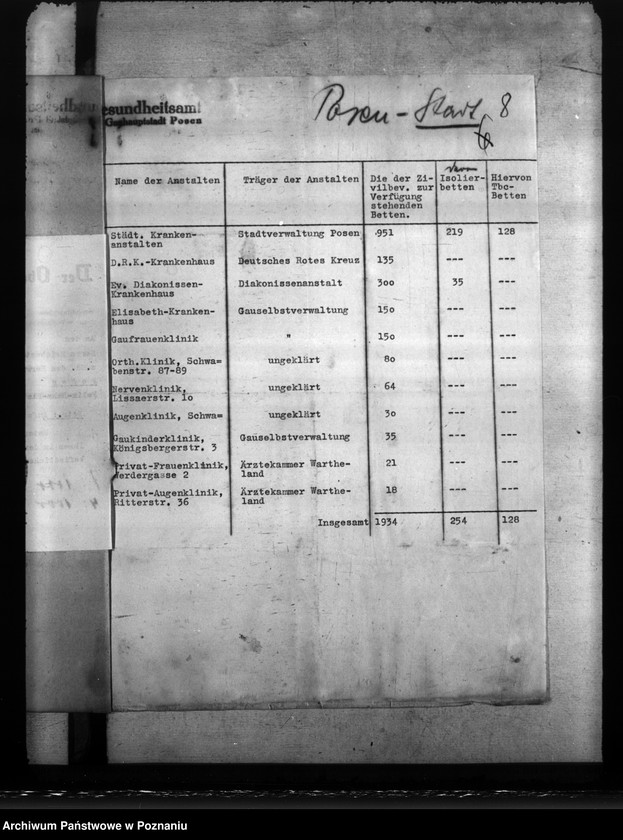 Gesundheitsamt
Gauhauptstadt Posen
Posen - Stadt 8
Name der Anstalten | Träger der Anstalten | Die der Zi-vilbev. zur Verfügung stehenden Betten. | davon Isolier-betten | Hiervon Tbc-Betten
Städt. Kranken-anstalten | Stadtverwaltung Posen | 951 | 219 | 128
D.R.K.-Krankenhaus | Deutsches Rotes Kreuz | 135 | --- | ---
Ev. Diakonissen-Krankenhaus | Diakonissenanstalt | 3oo | 35 | ---
Elisabeth-Kranken-haus | Gauselbstverwaltung | 15o | --- | ---
Gaufrauenklinik | " | 15o | --- | ---
Orth.Klinik, Schwa=benstr. 87-89 | ungeklärt | 8o | --- | ---
Nervenklinik, Lissaerstr. 1o | ungeklärt | 64 | --- | ---
Augenklinik, Schwa= | ungeklärt | 3o | --- | ---
Gaukinderklinik, Königsbergerstr. 3 | Gauselbstverwaltung | 35 | --- | ---
Privat-Frauenklinik, Werdergasse 2 | Ärztekammer Warthe-land | 21 | --- | ---
Privat-Augenklinik, Ritterstr. 36 | Ärztekammer Warthe-land | 18 | --- | ---
Insgesamt | 1934 | 254 | 128
Archiwum Państwowe w Poznaniu